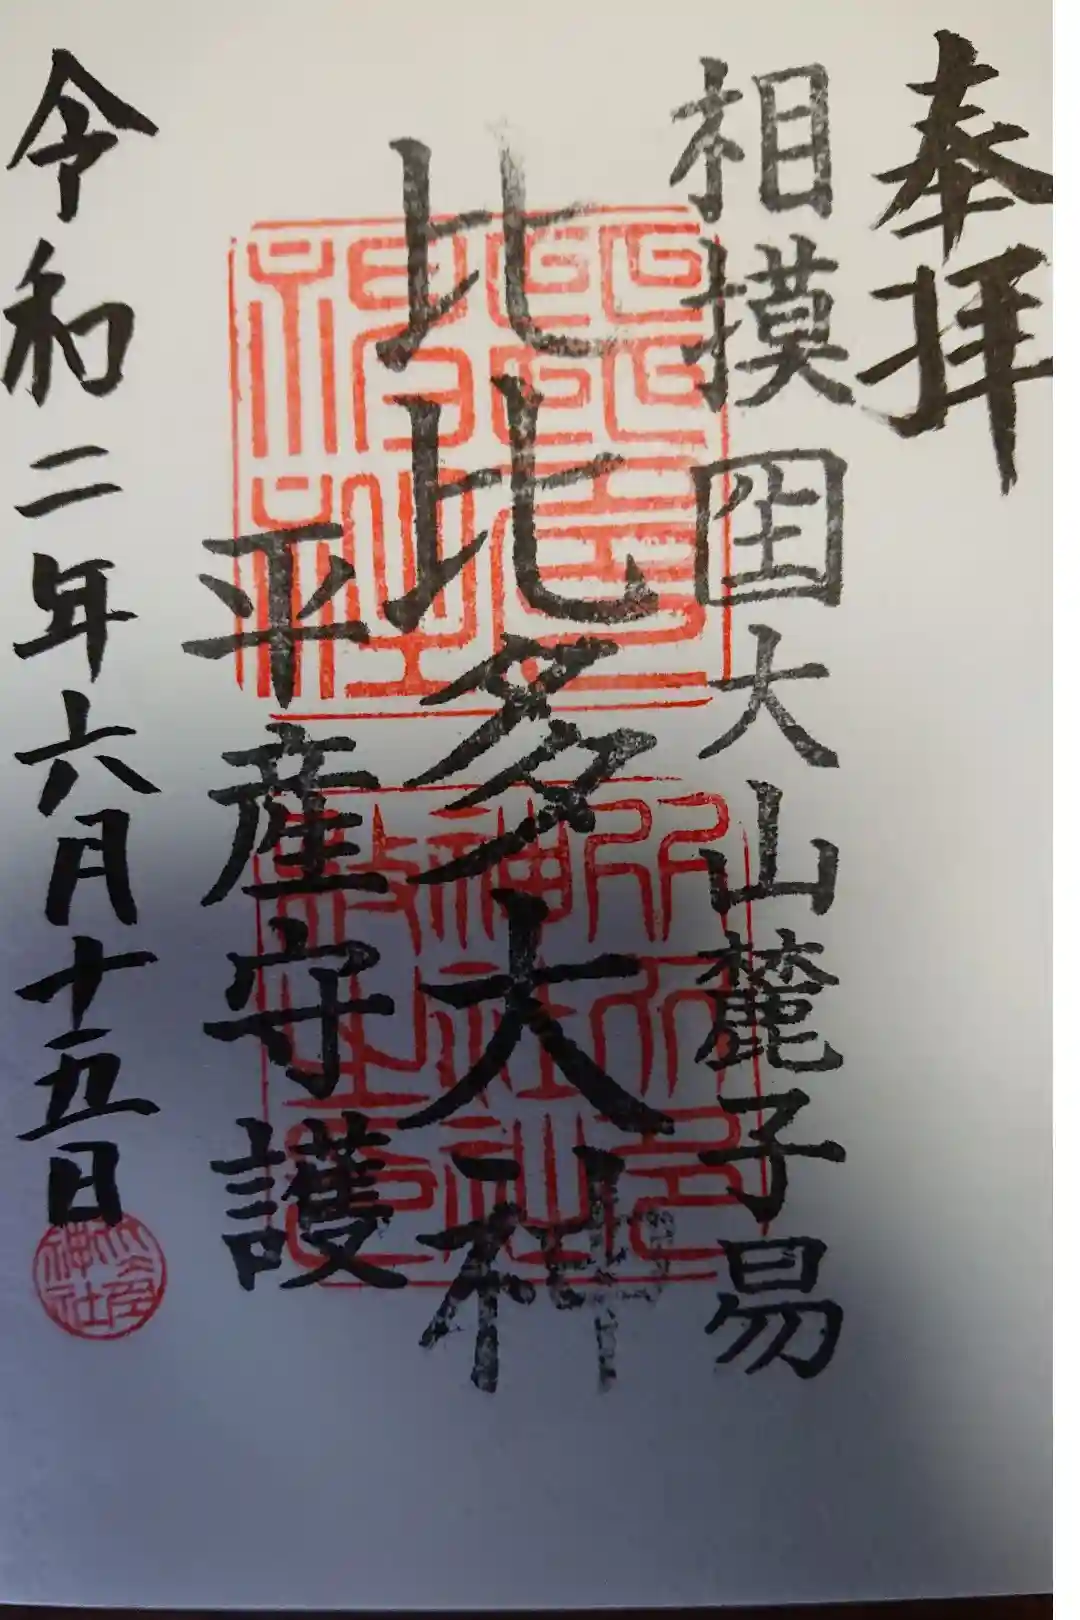 奉拝
相模国大山麓子易
比比多大神
平産守護
令和二年六月十五日